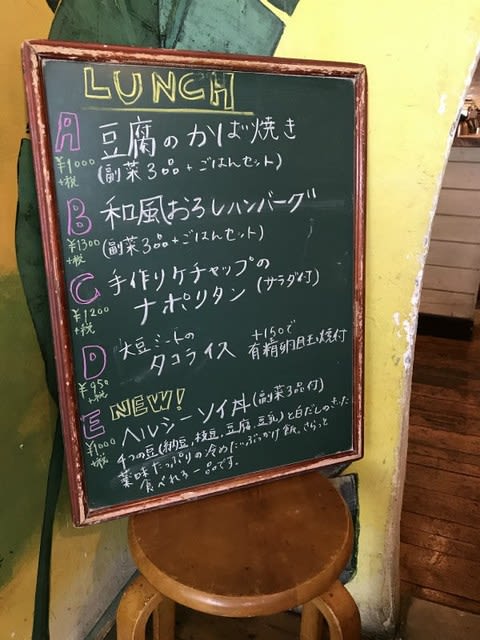 LUNCH
A 豆腐のかば焼き
¥1000 +税 (副菜3品+ごはんセット)
B 和風おろしハンバーグ
¥1300 +税 (副菜3品+ごはんセット)
C 手作りケチャップの
ナポリタン (サラダ付)
¥1200 +税
D 大豆ミートの
タコライス +150で
有精卵目玉焼付
¥950 +税
E NEW!
ヘルシーソイ丼(副菜3品付)
¥1000 +税
4つの豆(納豆、枝豆、豆腐、豆乳)と白だしのきいた
薬味たっぷりの冷めたいぶっかけ飯。さらっと
食べれる一品です。